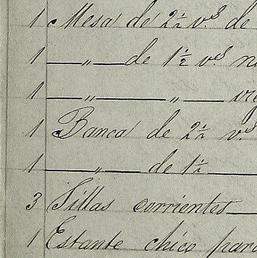 1 Mesa de 2½ v.s de
1 —〃— de 1½ v.s
1 —〃— —〃—
1 Banca de 2½ v.s
1 —〃— de 1½
3 Sillas corrientes—
1 Estante chico para